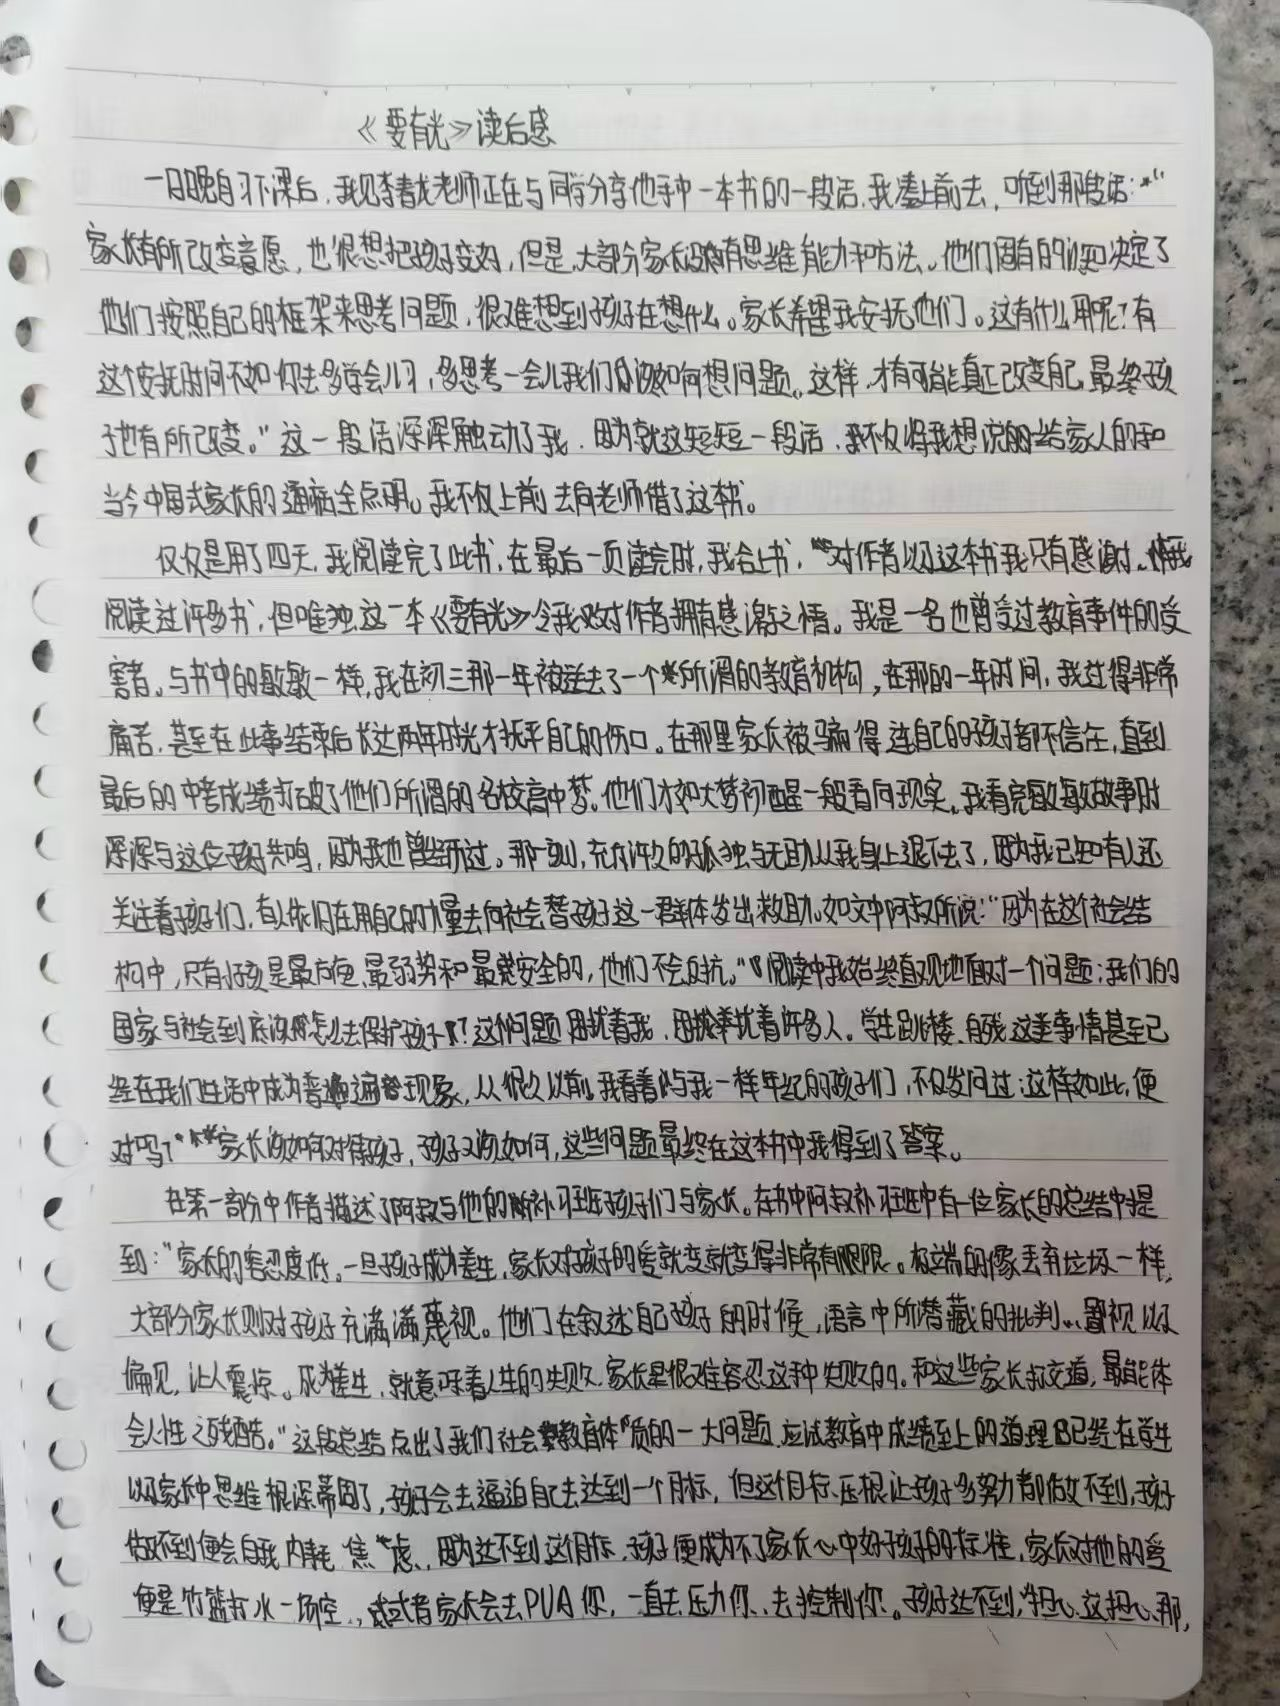 《要有光》读后感
一日晚自习下课后，我见李春龙老师正在与同学分享他手中一本书的一段话，我凑上前去，听到那段话："
家长有所改变意愿，也很想把孩子变好，但是，大部分家长没有思维能力和方法。他们固有的认知决定了
他们按照自己的框架来思考问题，很难想到孩子在想什么。家长希望我安抚他们。这有什么用呢？有
这个安抚时间不如你去多学会儿习，多思考一会儿我们应该如何想问题。这样，才有可能真正改变自己，最终孩
子也有所改变。"这一段话深深触动了我，因为就这短短一段话，我不仅将我想说的给家人的和
当今中国式家长的通病全点明。我不仅上前去向老师借了这本书。
仅仅是用了四天，我阅读完了此书，在最后一页读完时，我合上书，对作者以及这本书我只有感谢，我
阅读过许多书，但唯独这一本《要有光》令我对作者拥有感激之情。我是一名也曾受过教育事件的受
害者。与书中的敏敏一样，我在初三那一年被送去了一个所谓的教育机构，在那的一年时间，我过得非常
痛苦，甚至在此事结束后长达两年时光才抚平自己的伤口。在那里家长被骗得连自己的孩子都不信任，直到
最后的中考成绩打破了他们所谓的名校高中梦。他们才如大梦初醒一般看向现实。我看完敏敏故事时
深深与这位孩子共鸣，因为我也曾经历过。那一刻，充斥许久的孤独与无助从我身上退下去了，因为我已知有人还
关注着孩子们，有人依旧在用自己的力量去向社会替孩子这一群体发出救助。如文中阿叔所说："因为在这个社会结
构中，只有小孩是最方便、最弱势和最安全的，他们不会反抗。"阅读中我始终直观地面对一个问题：我们的
国家与社会到底该怎么去保护孩子？这个问题困扰着我，困扰着许多人。学生跳楼、自残这些事情甚至已
经在我们生活中成为普遍现象，从很久以前，我看着与我一样年纪的孩子们，不仅发问过：这样如此，便
对吗？家长该如何对待孩子，孩子又该如何，这些问题最终在这本书中我得到了答案。
在第一部分中作者描述了阿叔与他的补习班孩子们与家长。在书中阿叔补习班中有一位家长的总结中提
到："家长的容忍度低。一旦孩子成为差生，家长对孩子的爱就变就变得非常有限限。极端的像丢弃垃圾一样，
大部分家长则对孩子充满满蔑视。他们在叙述自己孩子的时候，语言中所潜藏的批判、蔑视以及
偏见，让人震惊。成为差生，就意味着人生的失败，家长是很难容忍这种失败的。和这些家长打交道，最能体
会人性之残酷。"这段总结点出了我们社会教育体质的一大问题，应试教育中成绩至上的道理已经在学生
以及家长中思维根深蒂固了，孩子会去逼迫自己去达到一个目标，但这个目标压根让孩子多努力都做不到，孩子
做不到便会自我内耗、焦虑，因为达不到这个目标，孩子便成为不了家长心中好孩子的标准，家长对他的爱
便是竹篮打水一场空，或者家长会去PUA你，一直去压力你、去控制你。孩子达不到，担心这担心那，